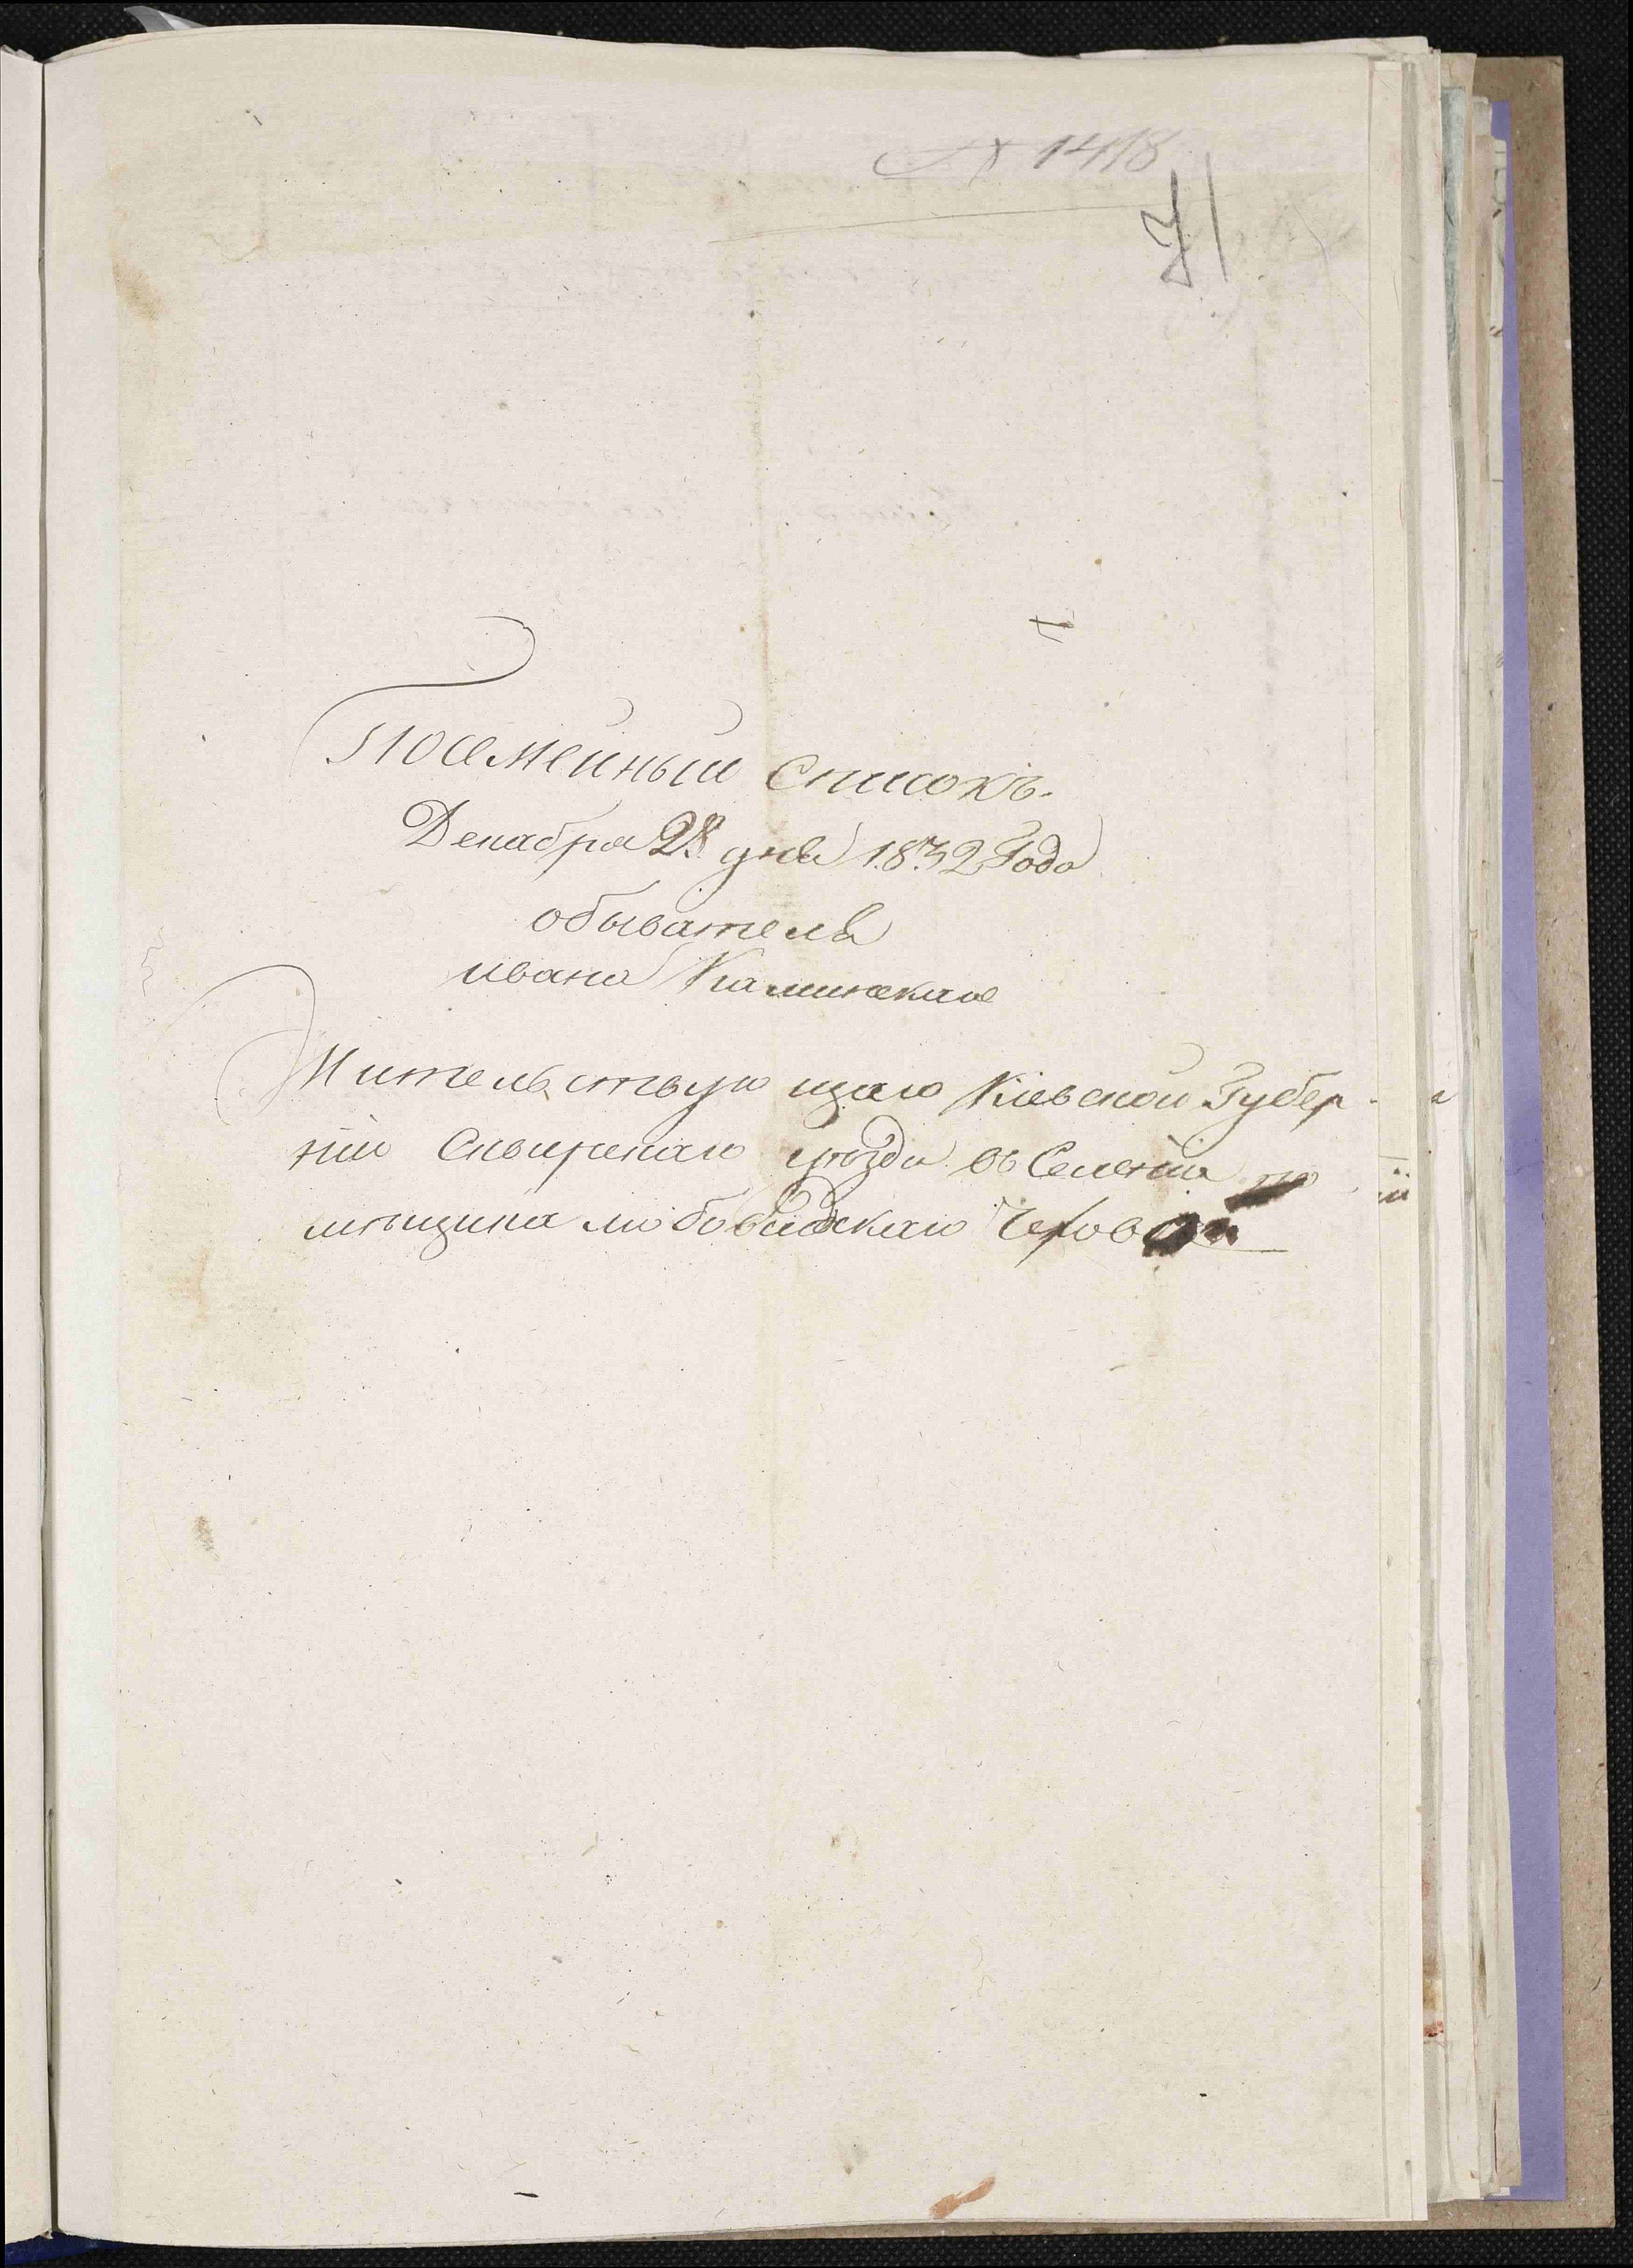 № 1418
71
Посемейный Списокъ.
Декабря 28 дня 1832 Года
обывателя
ивана Каминскаго
Жительствующаго Кіевской Губер-
ніи Сквирскаго уѣзда въ Селеніи по
мѣщика любовидскаго